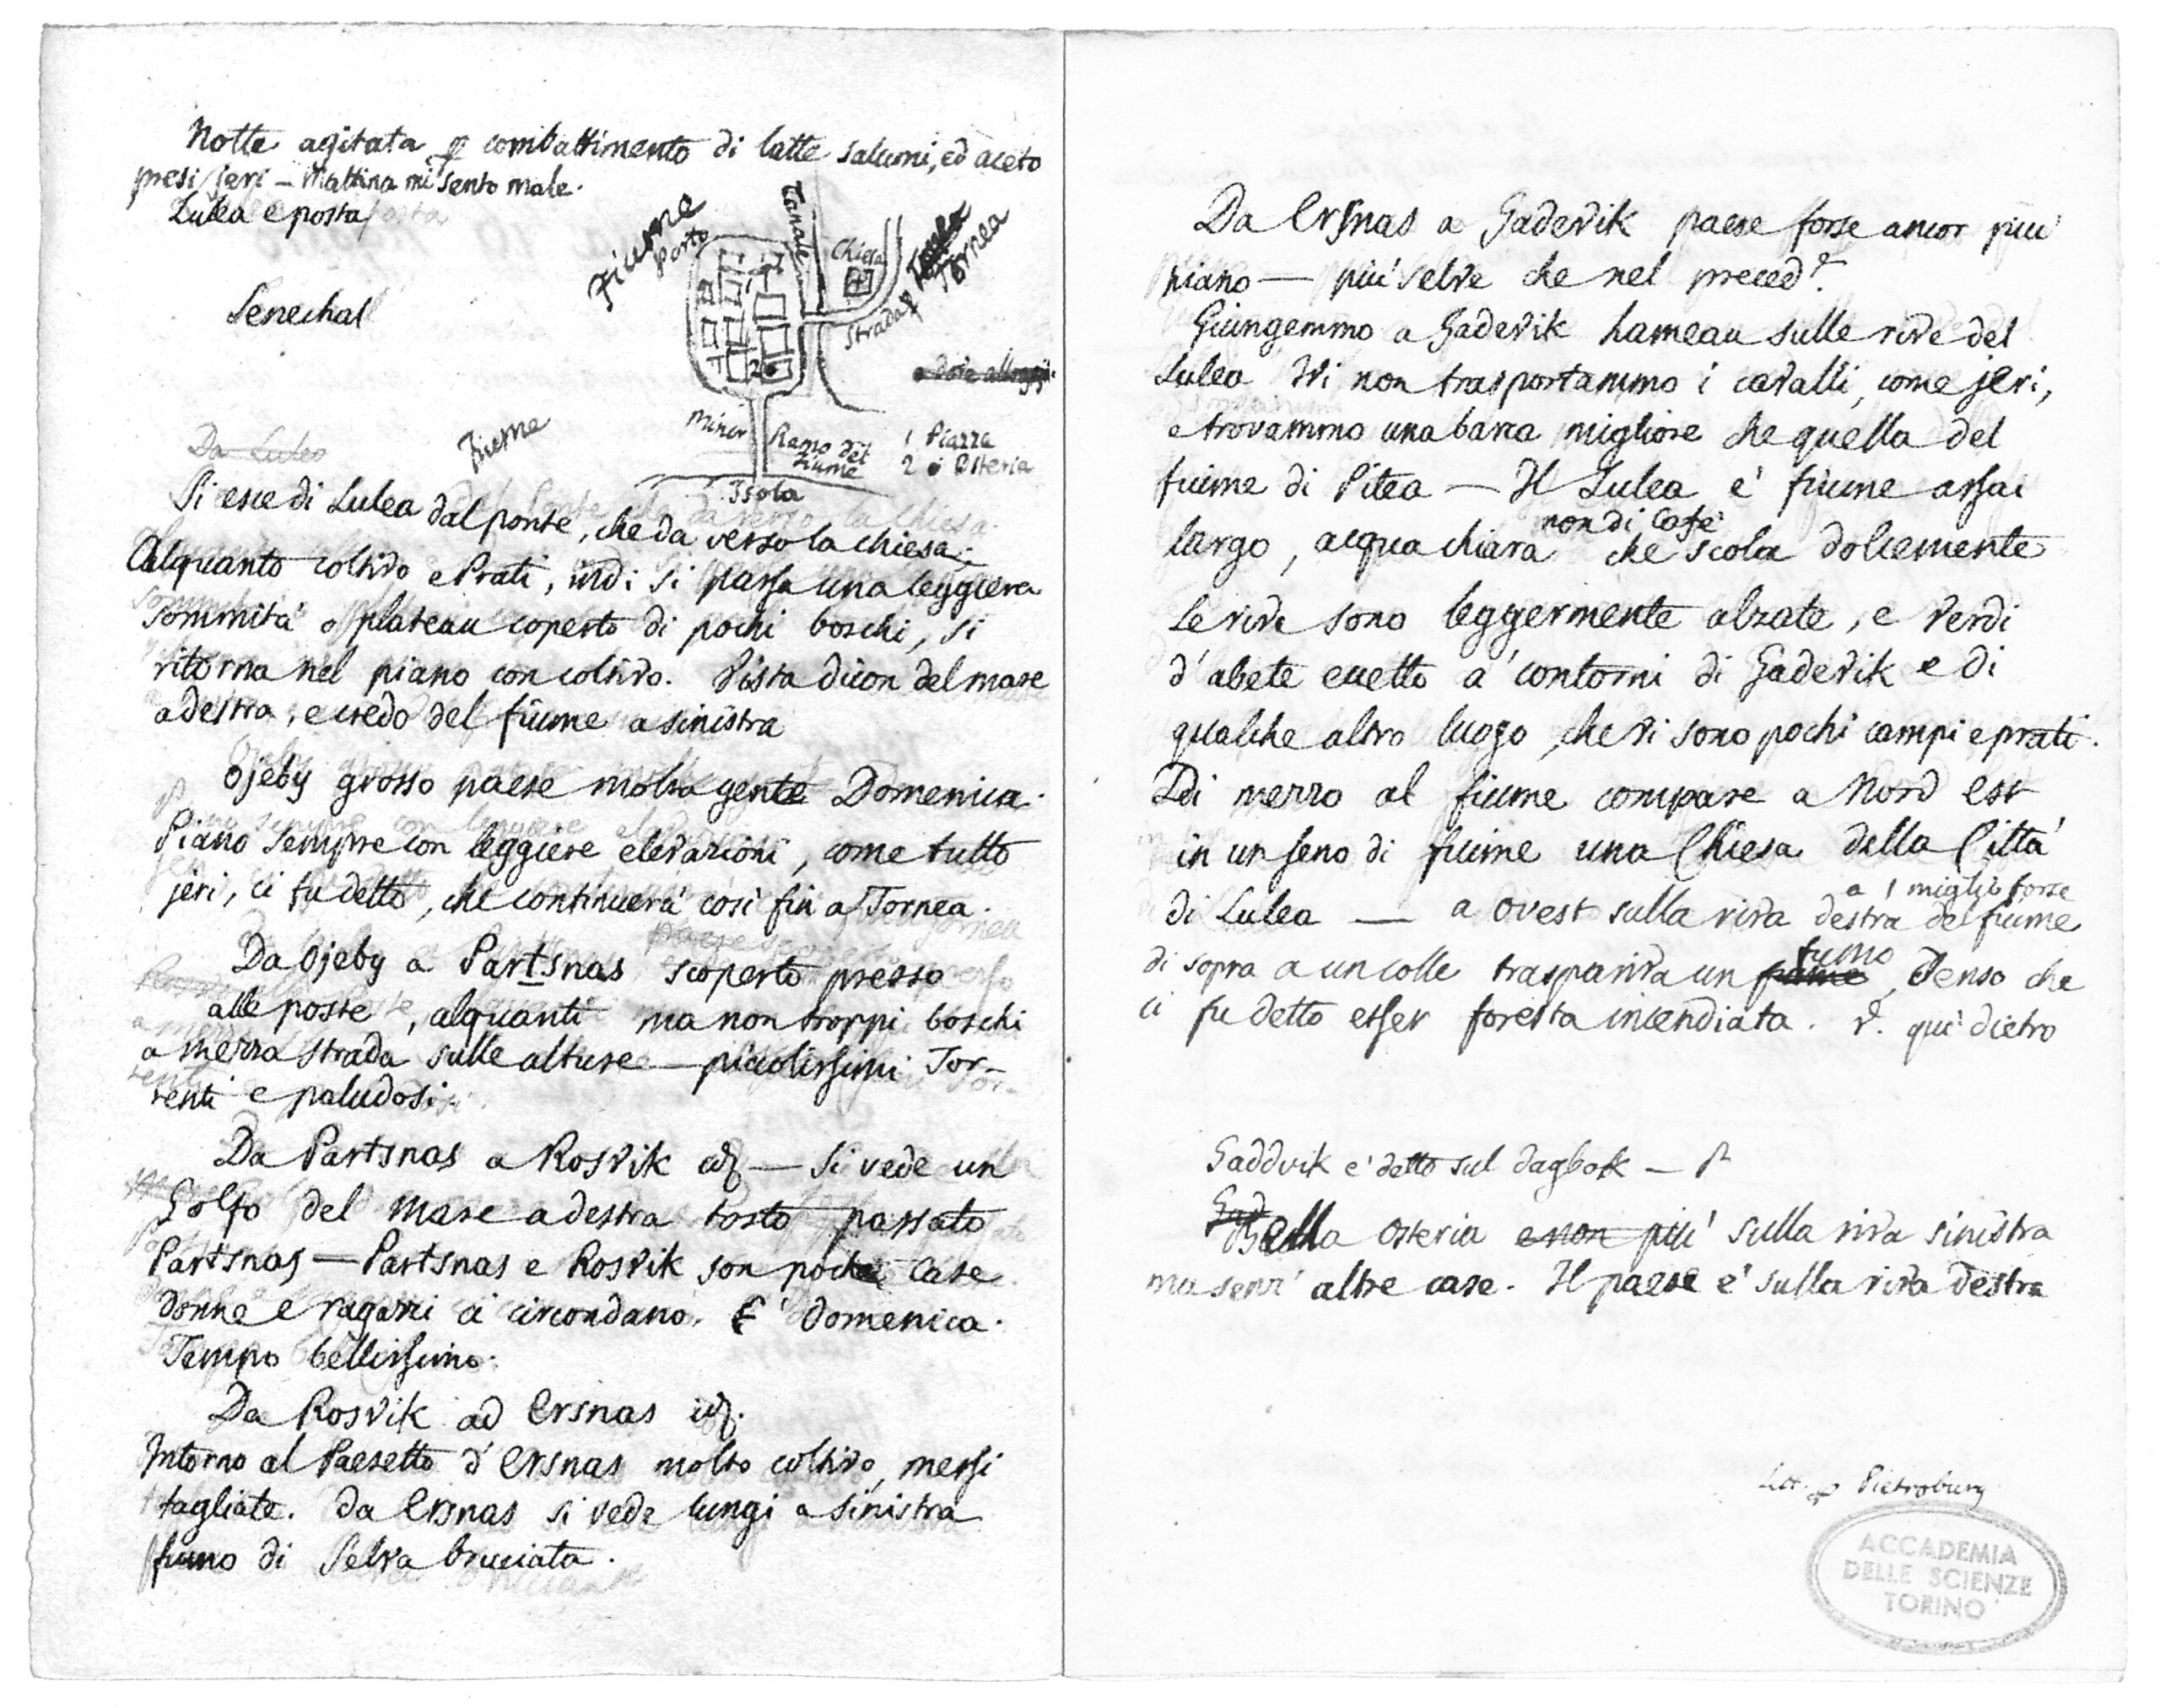 Notte agitata p combattimento di latte salumi, ed aceto
presi jeri — Mattina mi sento male.
Lulea e posta
Senechal
Fiume
Porto
Canale
Chiesa
Strada p
Tornea
a dove alloggi
Miner
Ramo del
fiume
1 Piazza
2 Osteria
Isola
Fiume
Da Luleo
Si esce di Lulea dal ponte, che da verso la chiesa.
Alquanto coltivo e Prati, indi si passa una leggiera
sommità o plateau coperto di pochi boschi, si
ritorna nel piano con coltivo. Vista dicon del mare
a destra, e credo del fiume a sinistra
Ojeby grosso paese molta gente Domenica.
Piano sempre con leggiere elevazioni, come tutto
jeri, ci fu detto, che continuerà così fin a Tornea.
Da Ojeby a Partsnas scoperto presso
alle poste, alquanti ma non troppi boschi
a mezza strada sulle alture — piccolissimi Tor-
renti e paludosi.
Da Partsnas a Rosvik id — Si vede un
Golfo del Mare a destra tosto passato
Partsnas — Partsnas e Rosvik son poche Case
donne e ragazzi ci circondano. E' domenica.
Tempo bellissimo.
Da Rosvik ad Ersnas id.
Intorno al Paesetto d'Ersnas molto coltivo, messi
tagliate. Da Ersnas si vede lungi a sinistra
fumo di Selva bruciata.
Da Ersnas a Gadevik paese forse ancor più
piano — più selve che nel preced.e
Giungemmo a Gadevik hameau sulle rive del
Lulea Ivi non trasportammo i cavalli, come jeri,
e trovammo una barca migliore che quella del
fiume di Pitea — Il Lulea è fiume assai
non di Cafè
largo, acqua chiara che scola dolcemente
Le rive sono leggermente alzate, e verdi
d'abete eccetto a' contorni di Gadevik e di
qualche altro luogo, che vi sono pochi campi e prati.
Di mezzo al fiume compare a Nord Est
in un seno di fiume una Chiesa della Città
a 1 miglio forse
di Lulea — a Ovest sulla riva destra del fiume
fumo
di sopra a un colle traspariva un fiume, denso che
ci fu detto esser foresta incendiata. v. quì dietro
Gaddvik è detto sul dagbok — P
Gad
Bella Osteria e non più sulla riva sinistra
ma senz' altre case. Il paese è sulla riva destra
Lett. p Pietroburg
ACCADEMIA
DELLE SCIENZE
TORINO